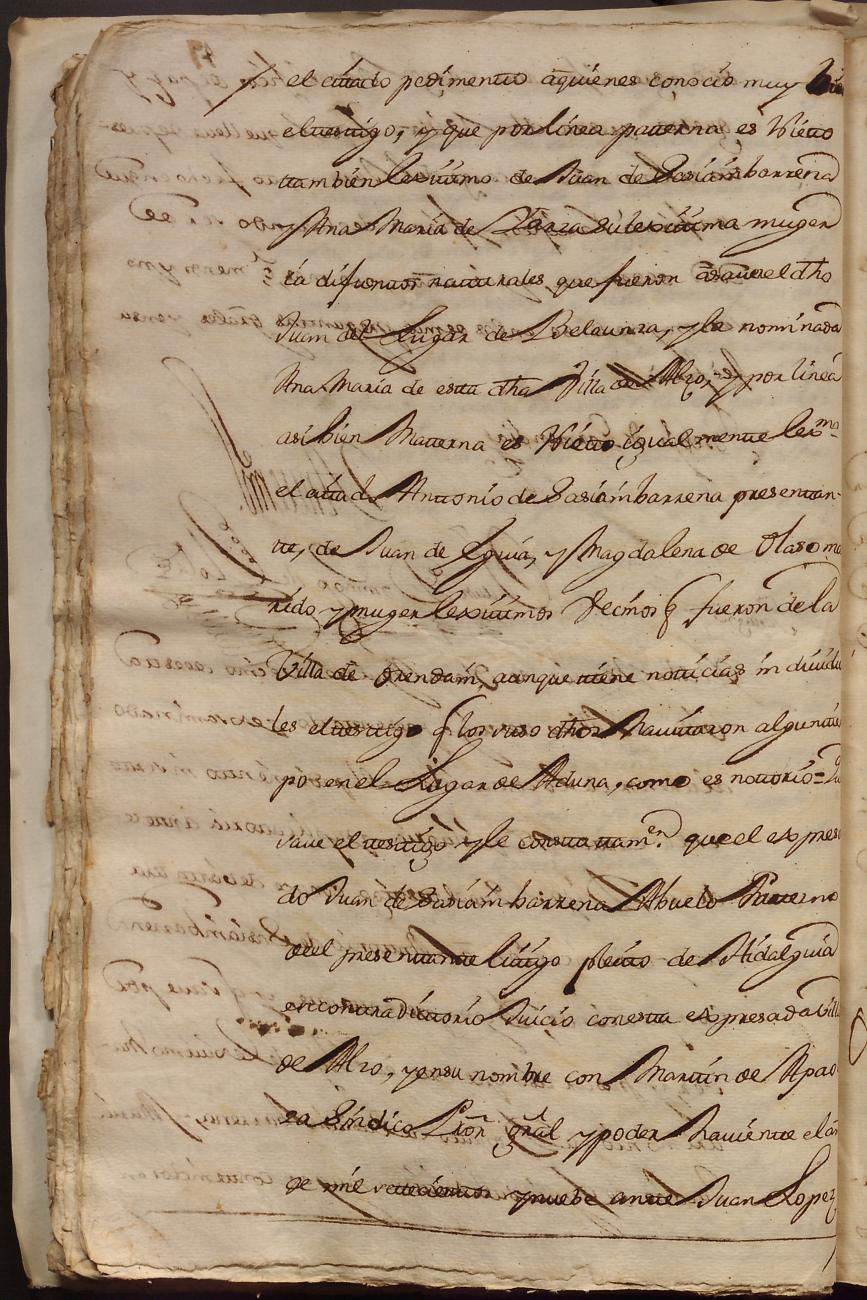 el citado pedimento aquienes conocio muy bien
el testigo, y que por linea paterna es Nieto
tambien lexitimo de Juan de Sasiambarrena
y Ana Maria de Larza su lexitima muger
ia difuntos naturales que fueron asaver el dho
Juan del Lugar de Belaunza, y la nominada
Ana Maria de esta dha Villa de Alzo, y por linea
asi bien Materna es Nieto igualmente lexmo
el citado Antonio de Sasiambarrena presentan-
te, de Juan de Eguia, y Magdalena de Olaso ma
rido y muger lexitimos Vecinos q fueron de la
Villa de Orendain, aunque tiene noticias individua
les el testigo q los ruso dhos Havitaron algun tiem
po en el Lugar de Aduna, como es nottorio =
save el testigo y le consta tamen. que el expresa
do Juan de Sasiambarrena Abuelo Paterno
de el presentante litigo pleito de Hidalguia
en contradictorio Juicio con esta expresada Villa
de Alzo, y en su nombre con Martin de Apao
za Sindico Pror gral y poder haviente el añ
de mil setecientos y nuebe ante Juan Lopez